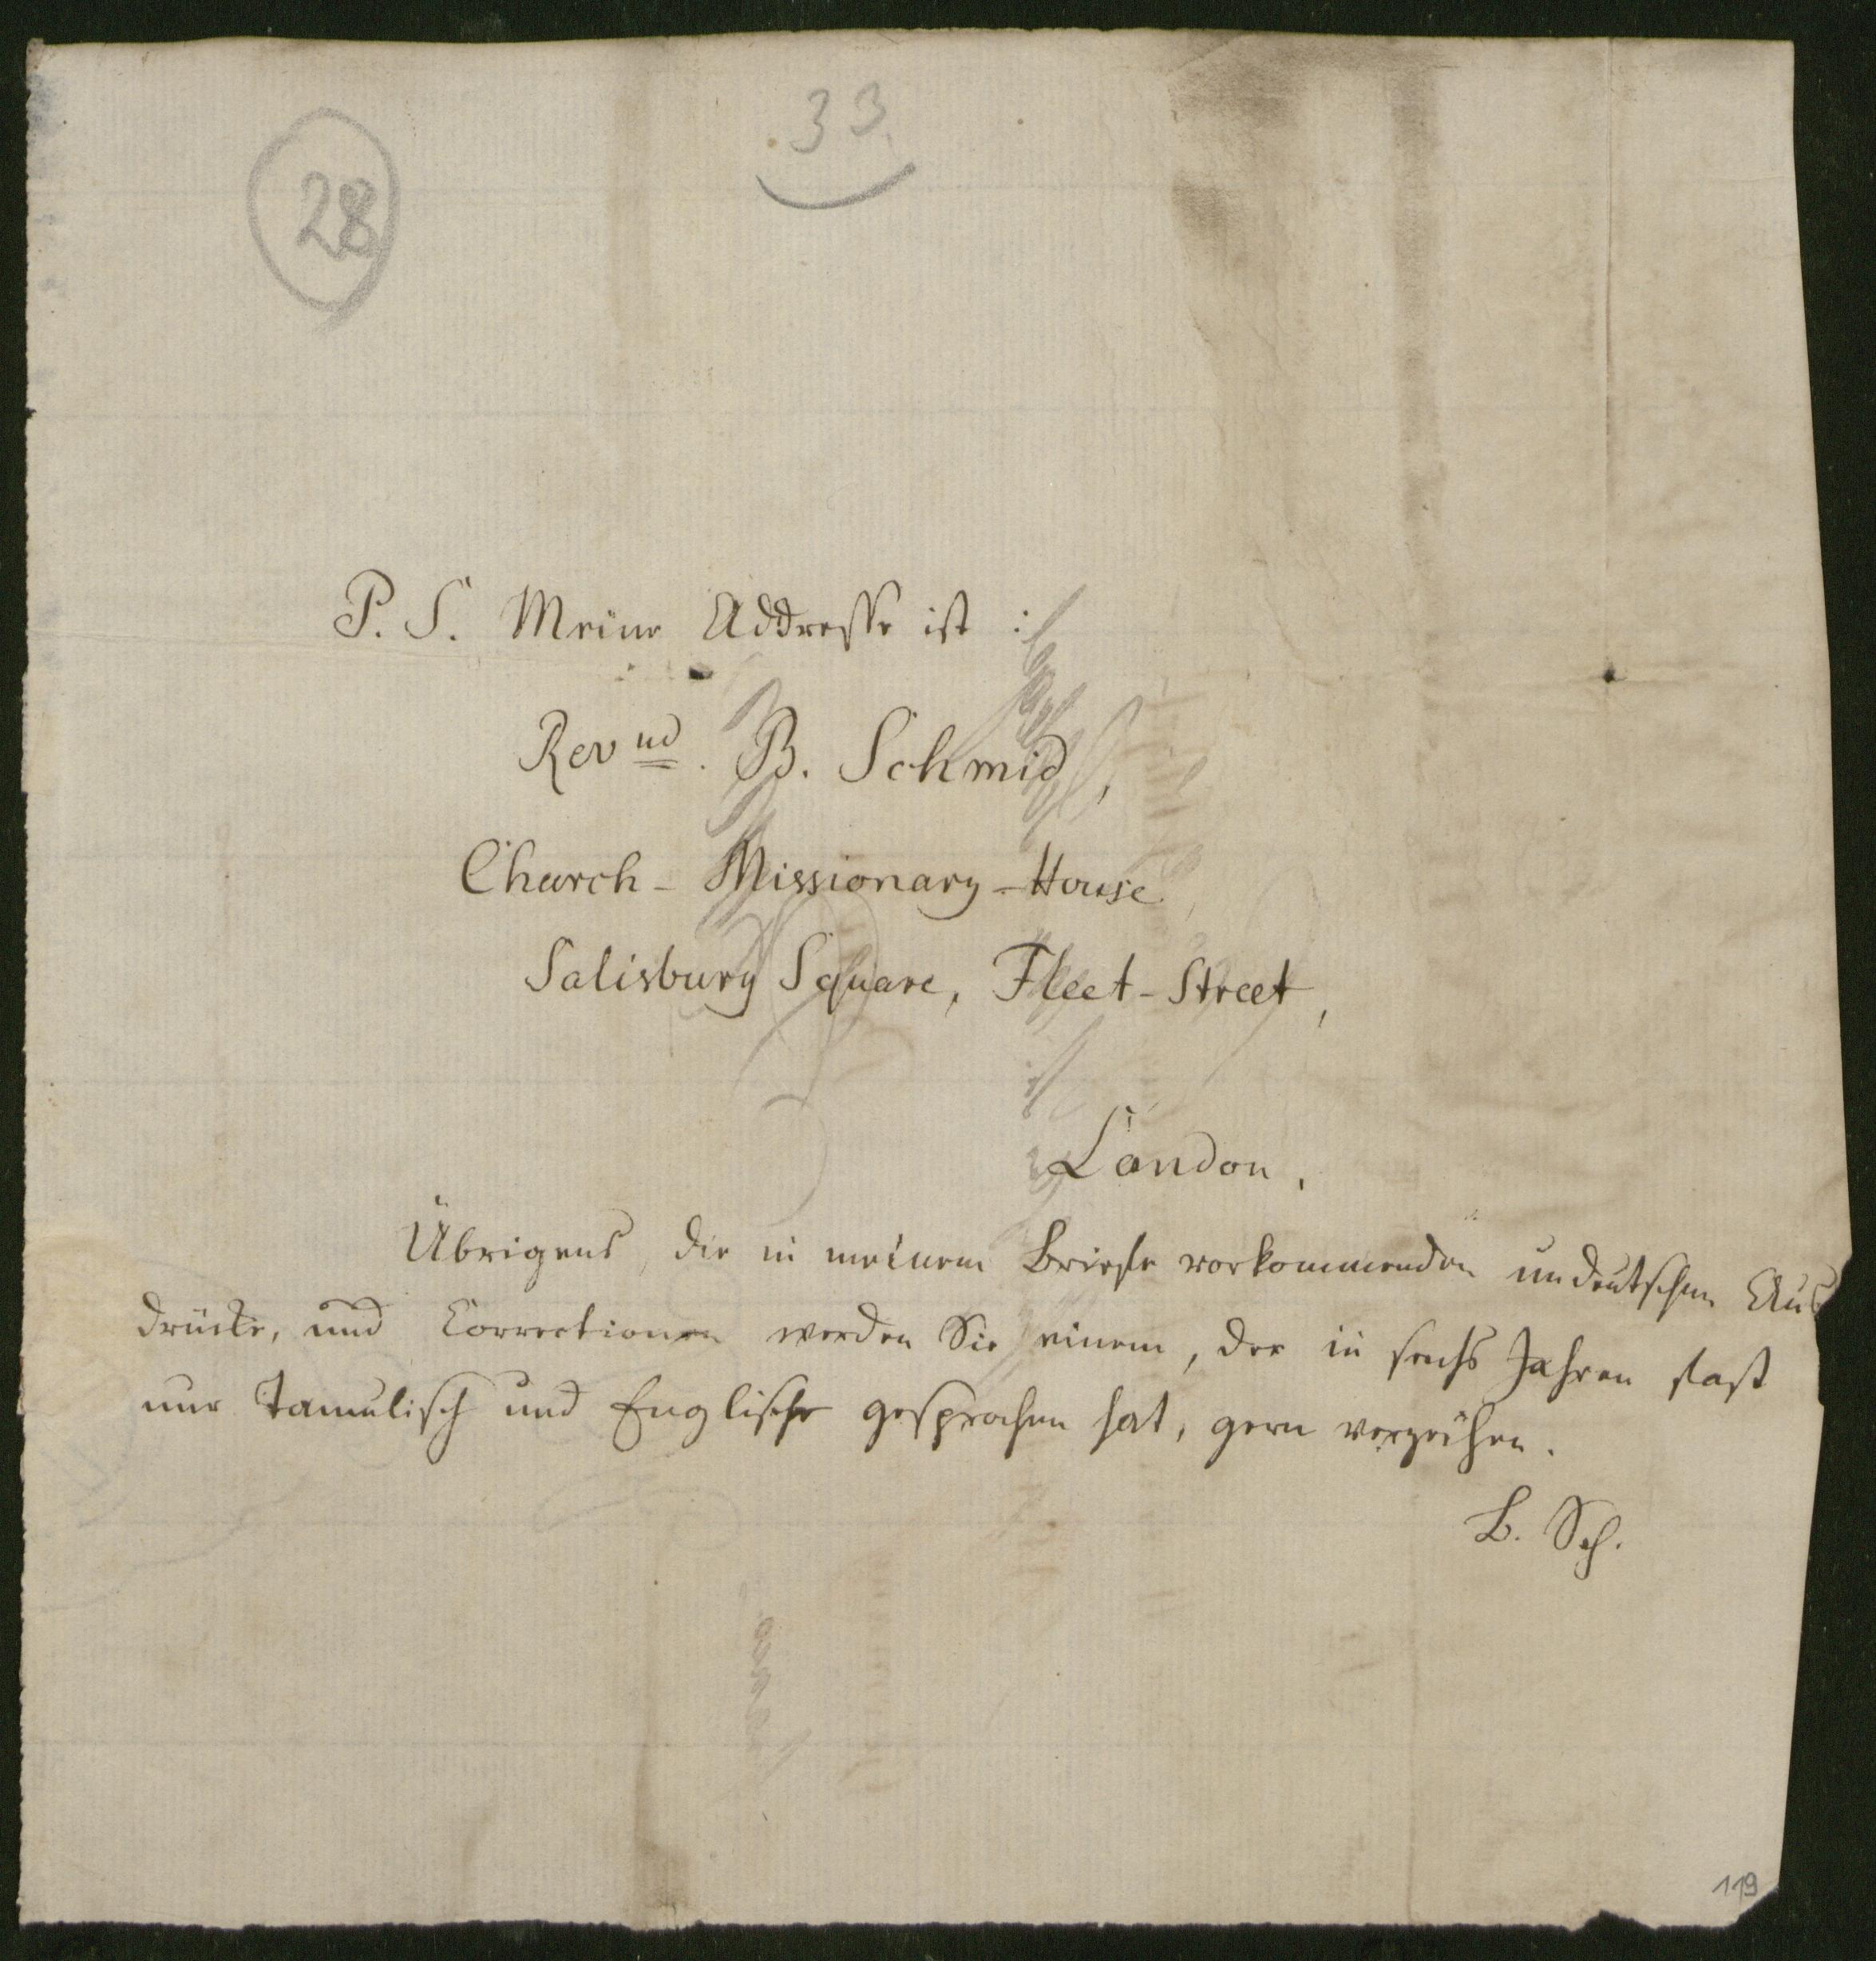 28
33
P. S. Meine Addresse ist :
Revnd. B. Schmid,
Church-Missionary-House,
Salisbury Square, Fleet-Street,
London.
Übrigens, die in meinem Briefe vorkommenden undeutschen Aus
drücke, und Correctionen werden Sie einem, der in sechs Jahren fast
nur Tamulisch und Englisch gesprochen hat, gern verzeihen.
B. Sch.
119